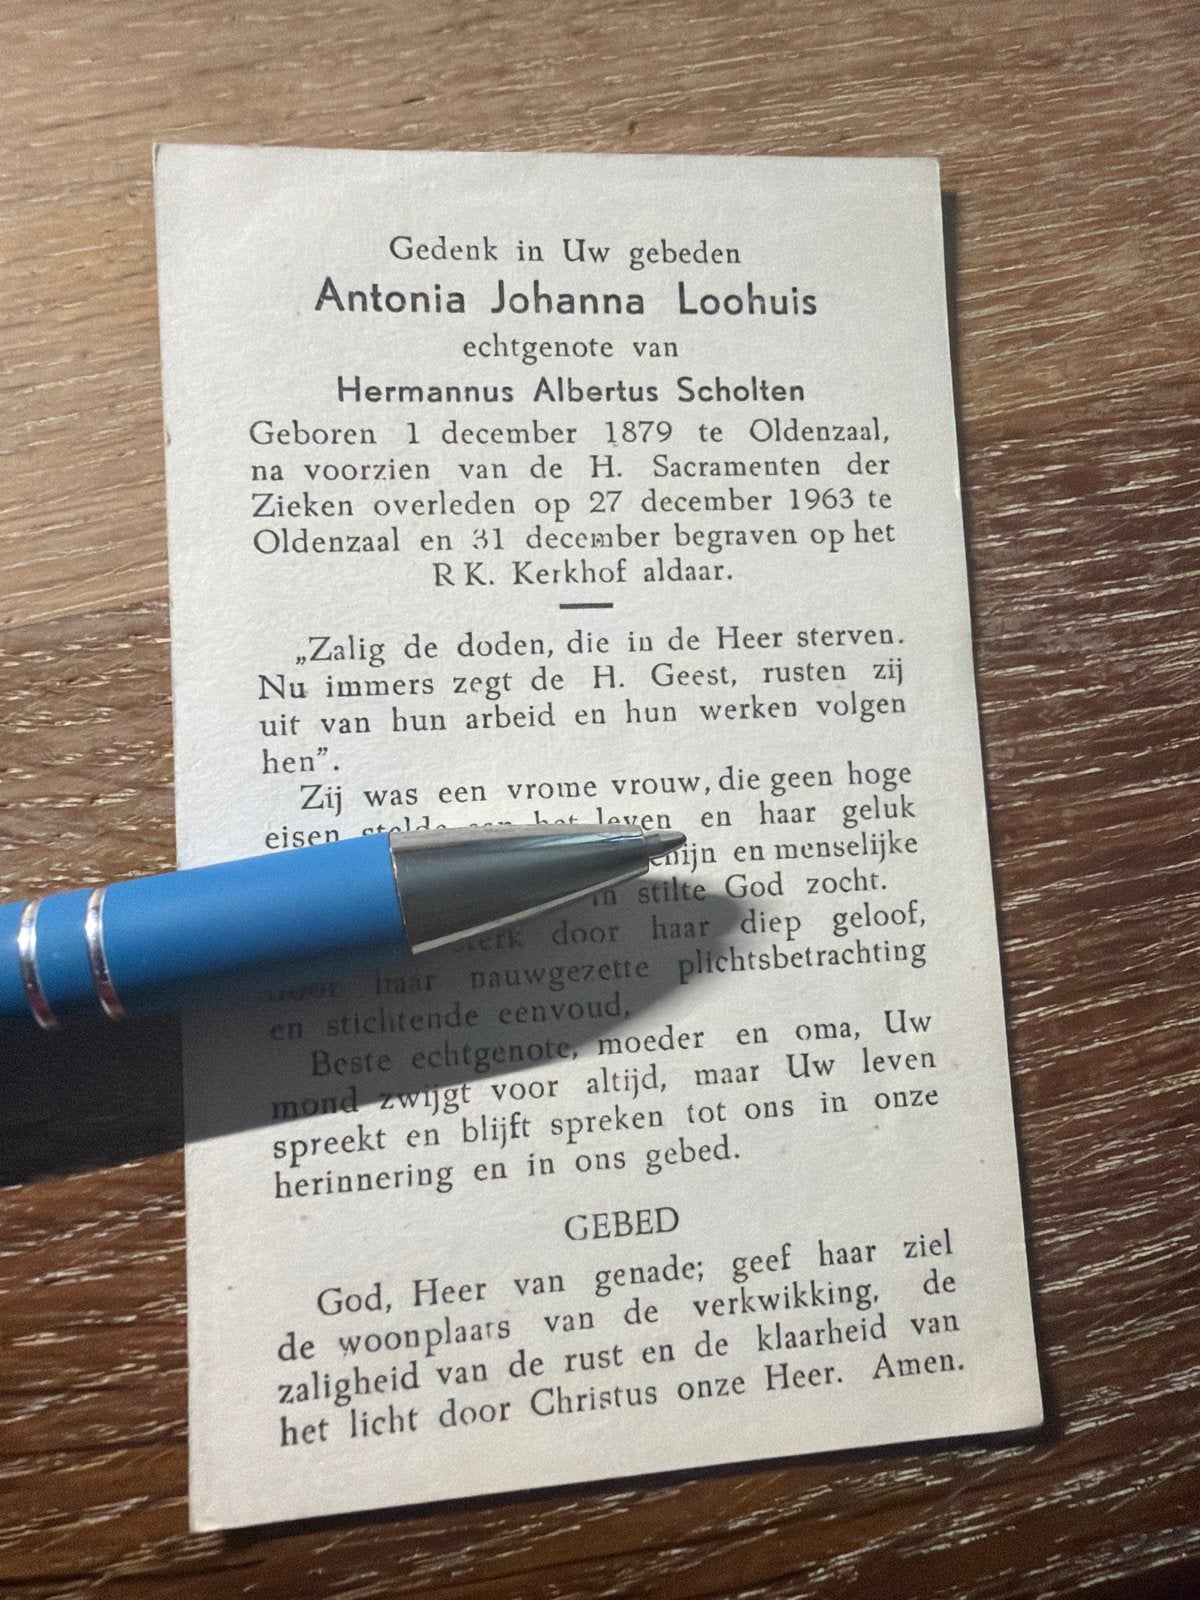 Gedenk in Uw gebeden
Antonia Johanna Loohuis
echtgenote van
Hermannus Albertus Scholten
Geboren 1 december 1879 te Oldenzaal,
na voorzien van de H. Sacramenten der
Zieken overleden op 27 december 1963 te
Oldenzaal en 31 december begraven op het
R K. Kerkhof aldaar.
„Zalig de doden, die in de Heer sterven.
Nu immers zegt de H. Geest, rusten zij
uit van hun arbeid en hun werken volgen
hen”.
Zij was een vrome vrouw, die geen hoge
eisen stelde aan het leven en haar geluk
en menselijke
in stilte God zocht.
door haar diep geloof,
door haar nauwgezette plichtsbetrachting
en stichtende eenvoud,
Beste echtgenote, moeder en oma, Uw
mond zwijgt voor altijd, maar Uw leven
spreekt en blijft spreken tot ons in onze
herinnering en in ons gebed.
GEBED
God, Heer van genade; geef haar ziel
de woonplaats van de verkwikking, de
zaligheid van de rust en de klaarheid van
het licht door Christus onze Heer. Amen.